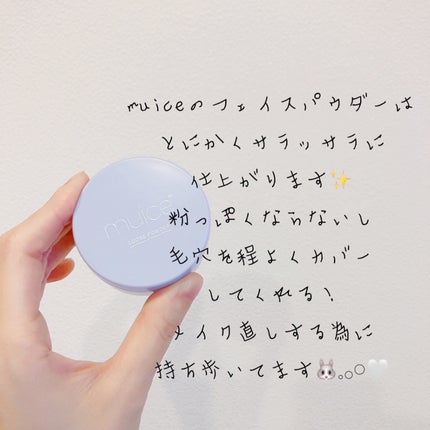 muiceのフェイスパウダーは
とにかくサラッサラに
仕上がります✨
muice
LOOSE POWDER
粉っぽくならないし
毛穴を程よくカバー
してくれる!
メイク直しする為に
持ち歩いてます🐰｡｡○🤍